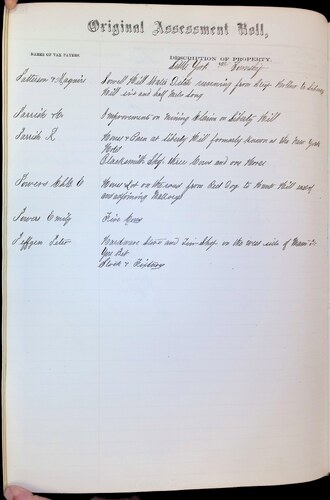 Original Assessment Roll,
NAMES OF TAX PAYERS.
DESCRIPTION OF PROPERTY.
Little York Township
Patterson & Maguire
Lowell Hill Water Ditch running from Deep Hollow to Liberty
Hill six and half Miles Long
Parrish
Improvement on Mining Claim on Liberty Hill
Parrish R
House & Barn at Liberty Hill formerly known as the New York
Hotel
Blacksmith Shop three Cows and one Horse
Powers
House & Lot on the road from Red Dog to Hunts Hill
adjoining
Powers Emily
Five Cows
Peter
Hardware Store and Tin Shop on the west side of Main St
You Bet
Stock & Fixtures